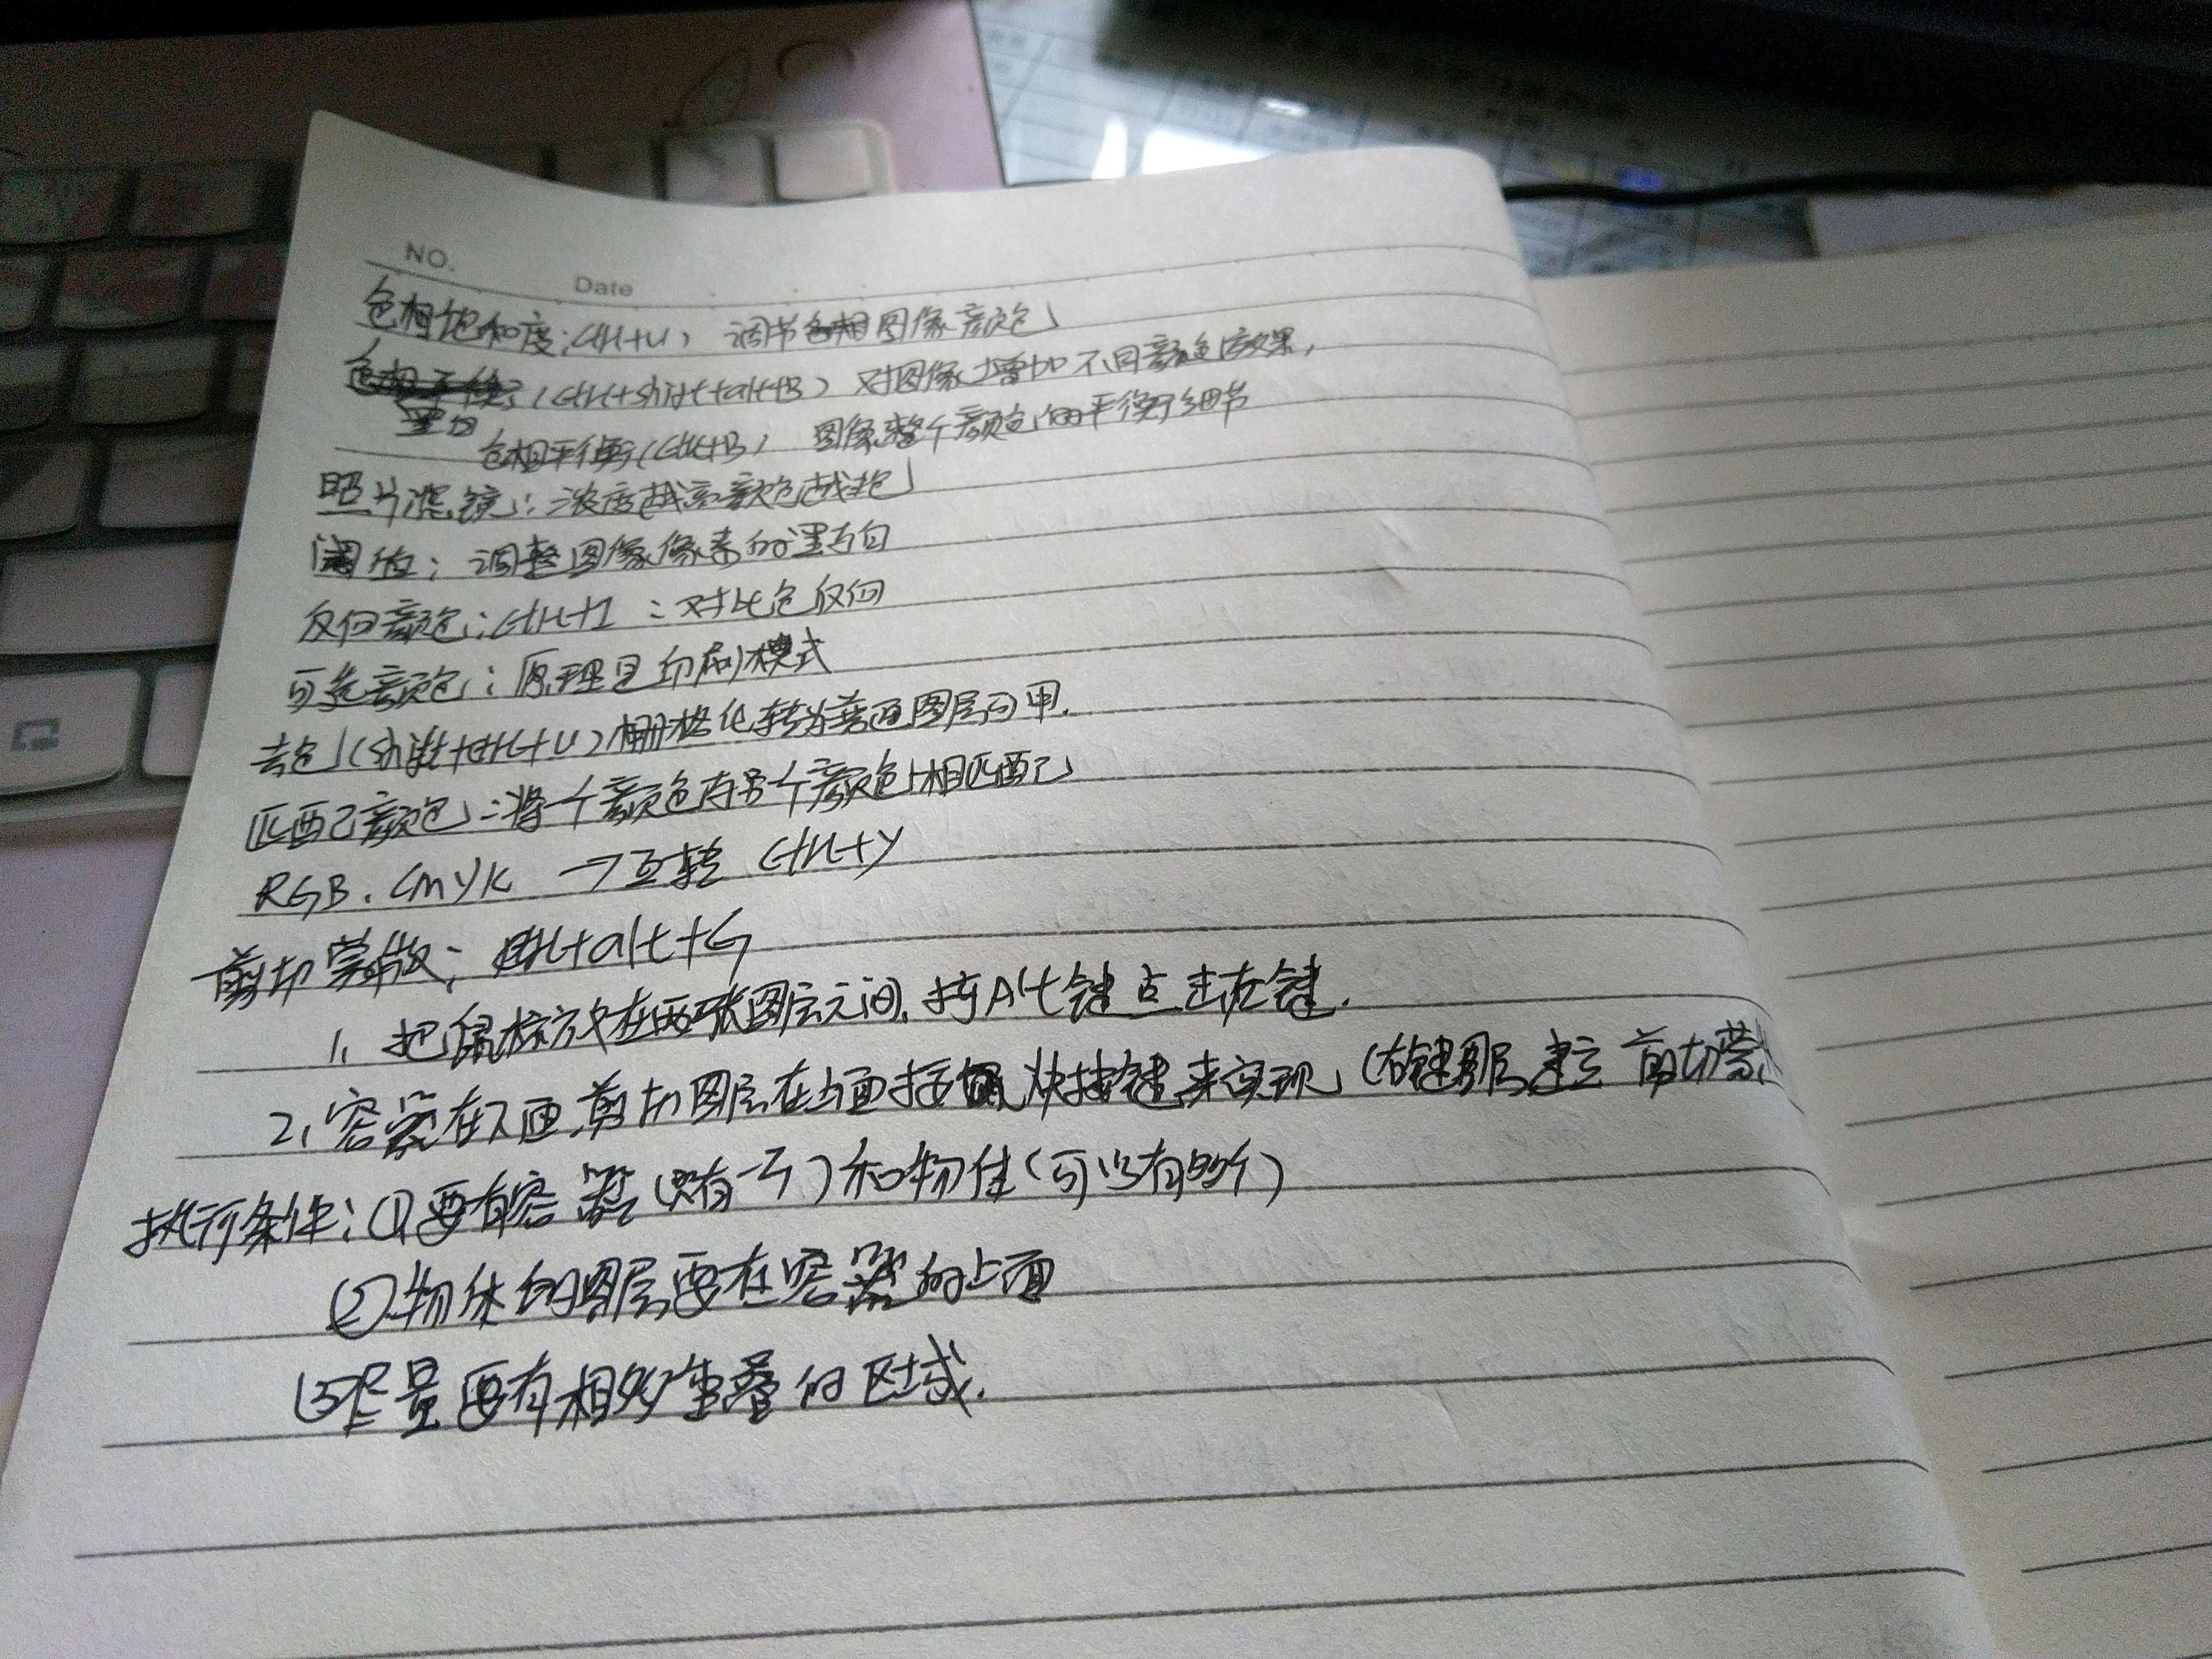 NO.
Date
色相饱和度:(Ctrl+U) 调节图像颜色
黑白 (Ctrl+shift+alt+B) 对图像增加不同颜色的效果,
色相平衡(Ctrl+B) 图像整个颜色的平衡细节
照片滤镜:浓度越高颜色越艳
阈值:调整图像像素的黑与白
反向颜色:Ctrl+I :对比色反向
可选颜色:原理是印刷模式
去色(shift+ctrl+U)栅格化转为普通图层可用.
匹配颜色:将一个颜色与另一个颜色相匹配
RGB.CMYK →互转 Ctrl+Y
剪切蒙版:Ctrl+alt+G
1、把鼠标放在两张图层之间,按Alt键点击左键.
2、容器在下面,剪切图层在上面按快捷键来实现(右键图层建立剪切蒙
执行条件:①要有容器(只有一个)和物体(可以有多个)
②物体的图层要在容器的上面
③尽量要有相交重叠的区域.